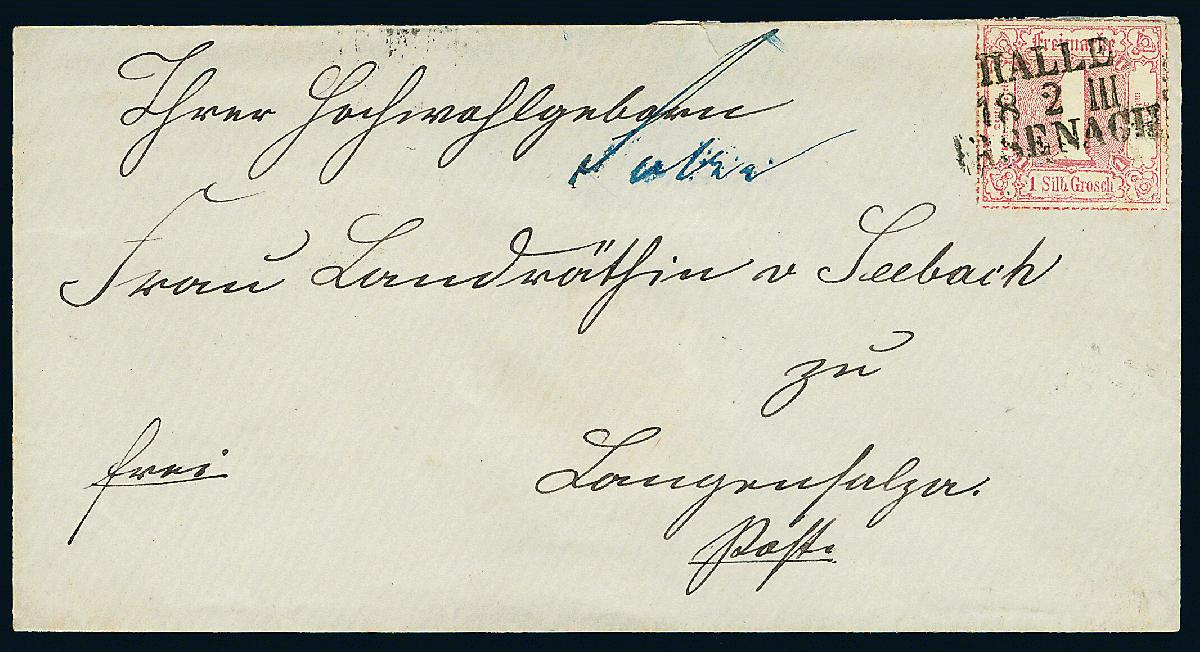 Freimarke
HALLE
18 2 III
EISENACH
1 Silb. Grosch
Ihrer Hochwohlgeborn
Frau Landräthin v Seebach
zu
Langensalza.
frei